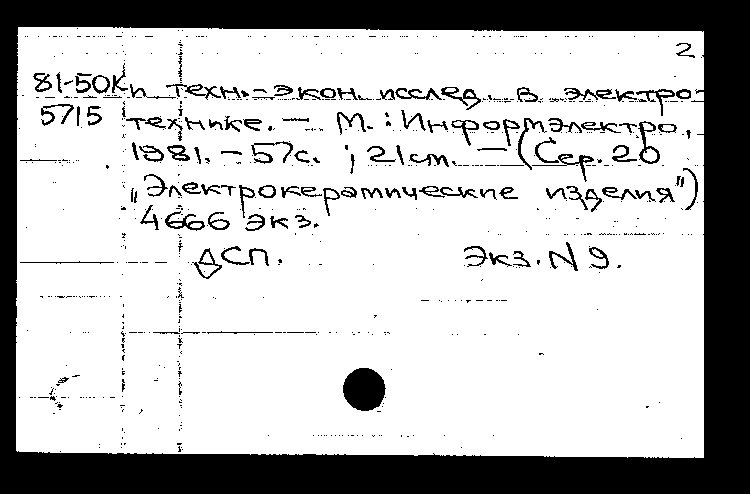 2.
81-50К п техн.-экон. исслед. в электро-
5715 технике. — М. : Информэлектро,
1981. – 57с. ; 21см. — (Сер. 20
„Электрокерамические изделия")
4666 экз.
ДСП. Экз. N 9.